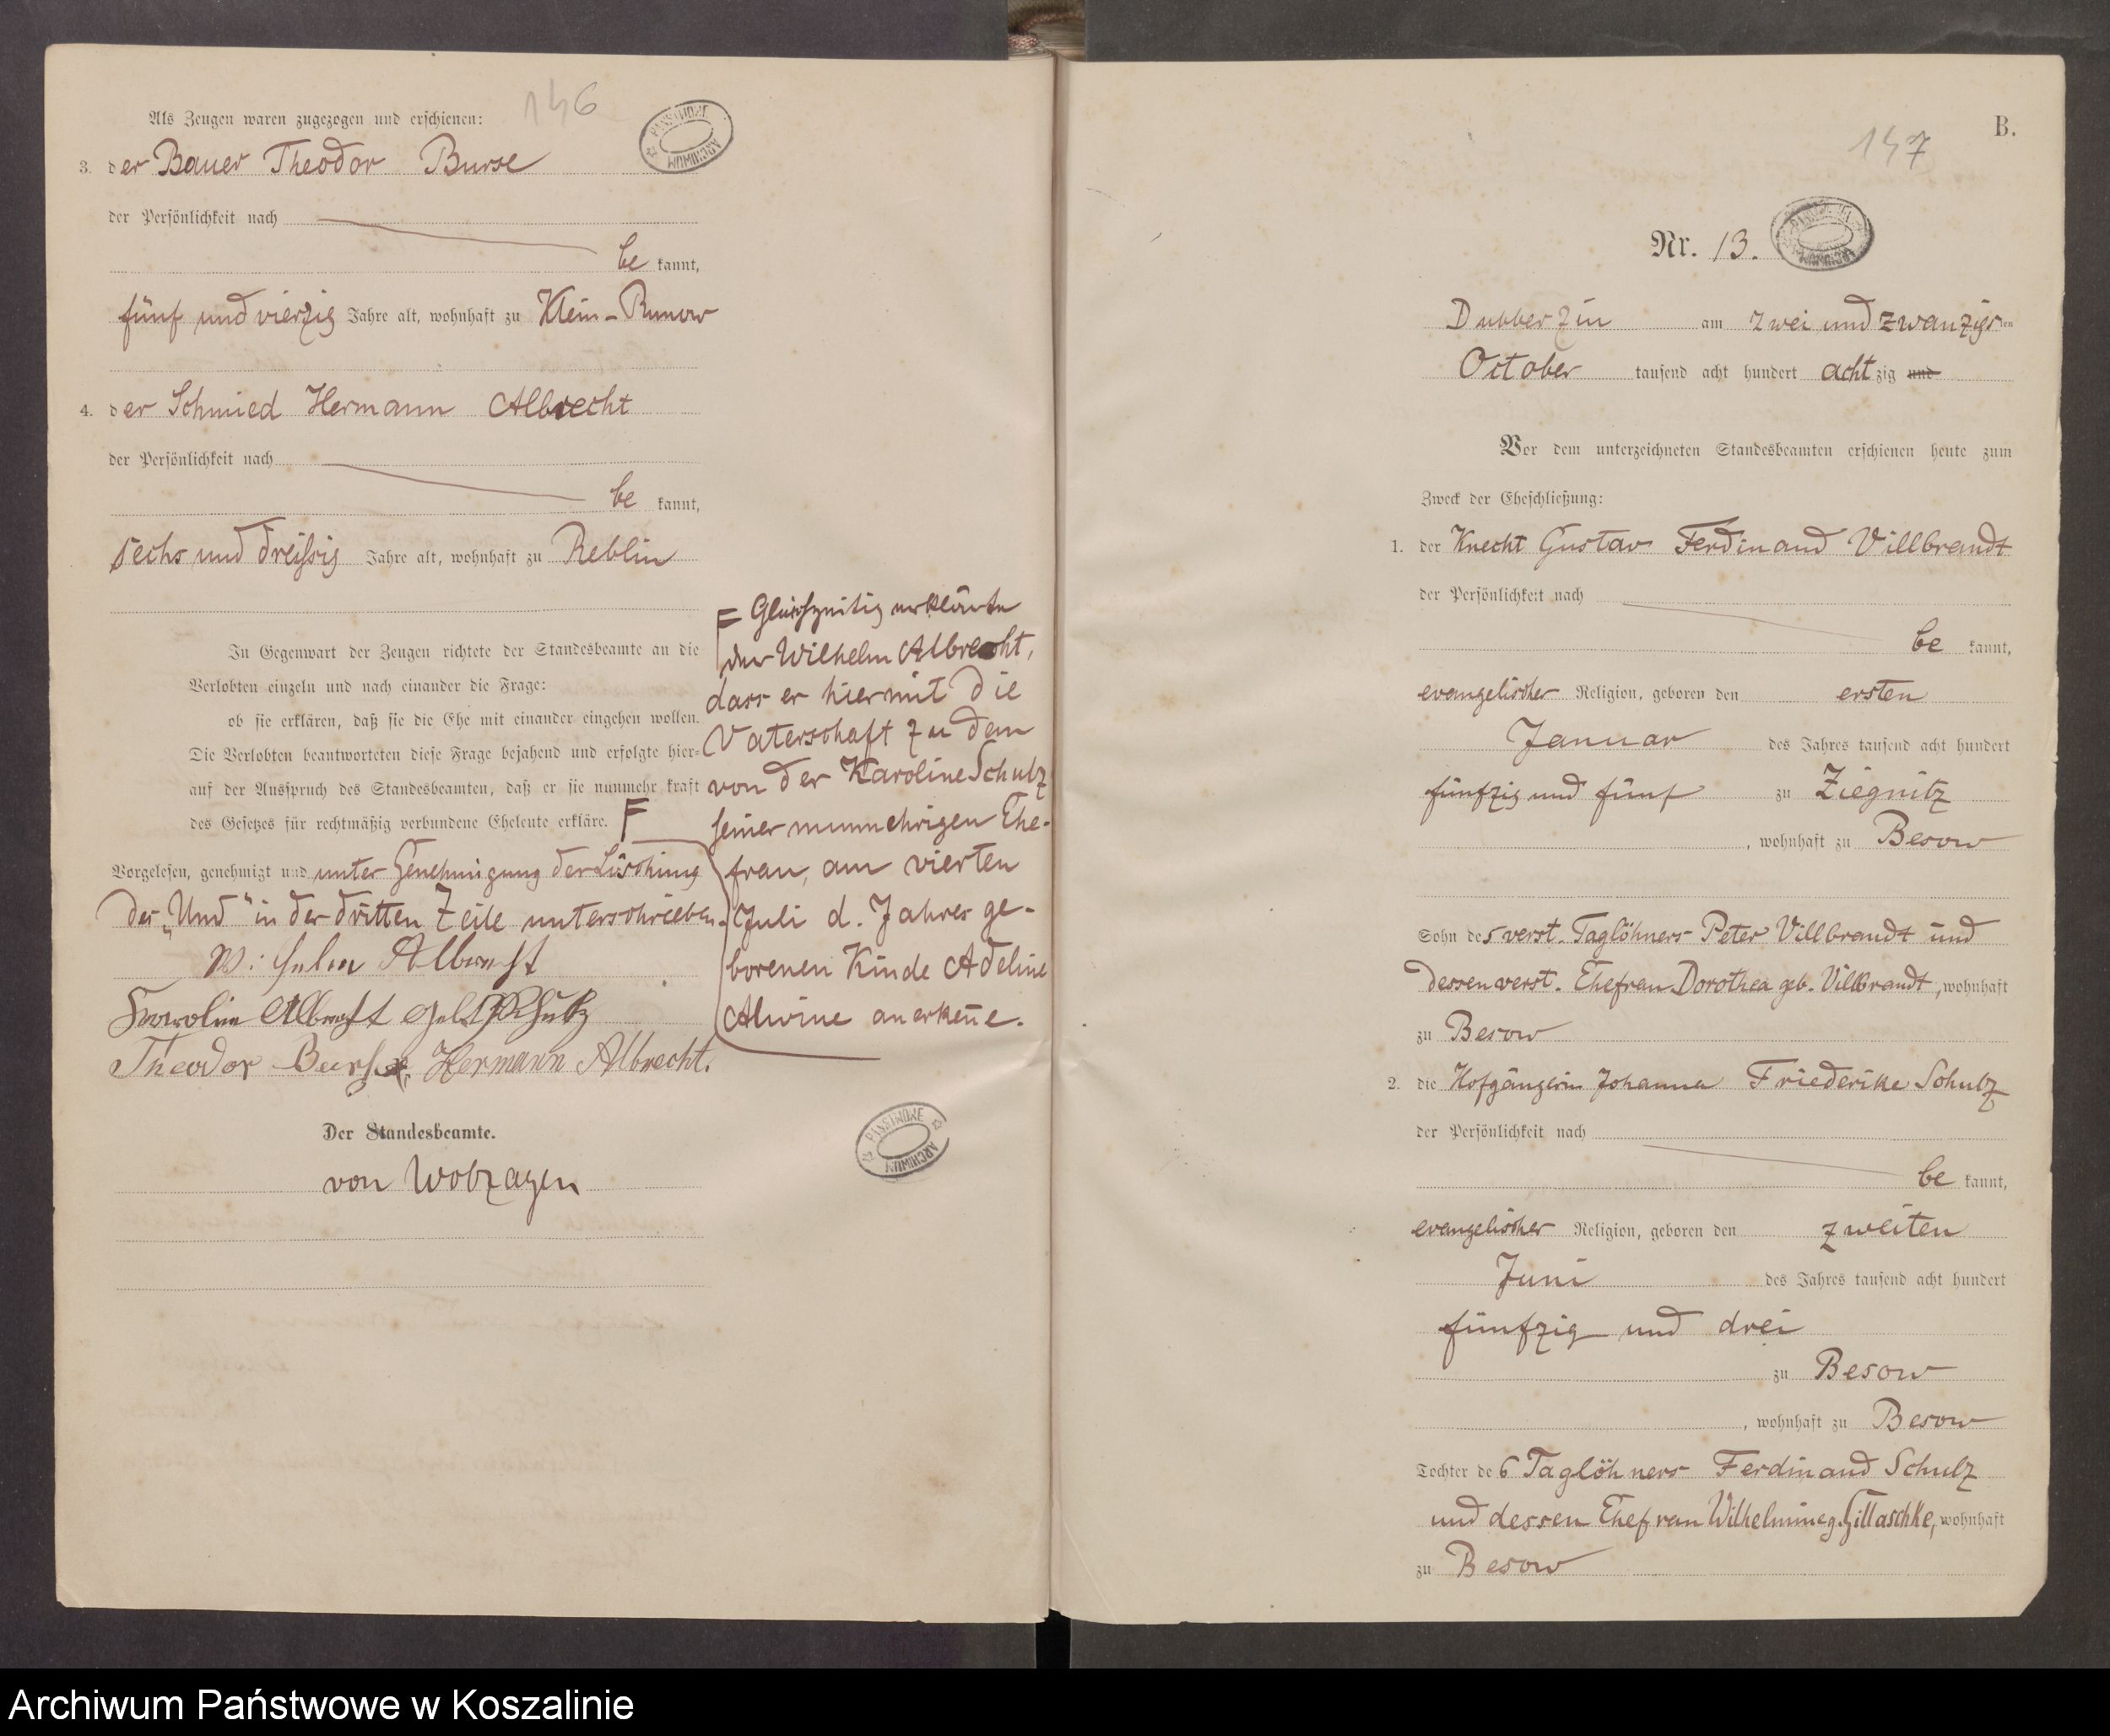 146
Als Zeugen waren zugezogen und erschienen:
PANSTWOWE ARCHIWUM
3. der Bauer Theodor Burse
der Persönlichkeit nach
be kannt,
fünf und vierzig Jahre alt, wohnhaft zu Klein-Runow
4. der Schmied Hermann Albrecht
der Persönlichkeit nach
be kannt,
sechs und dreißig Jahre alt, wohnhaft zu Reblin
In Gegenwart der Zeugen richtete der Standesbeamte an die
Verlobten einzeln und nach einander die Frage:
ob sie erklären, daß sie die Ehe mit einander eingehen wollen.
Die Verlobten beantworteten diese Frage bejahend und erfolgte hier-
auf der Ausspruch des Standesbeamten, daß er sie nunmehr kraft
des Gesetzes für rechtmäßig verbundene Eheleute erkläre. F
Vorgelesen, genehmigt und unter Genehmigung der Löschung
des „Und" in der dritten Zeile unterschrieben.
Wilhelm Albrecht
Karoline Albrecht geb. Schulz
Theodor Burse, Hermann Albrecht.
Der Standesbeamte.
von Wobzagen
F Gleichzeitig erklärte
der Wilhelm Albrecht,
dass er hiermit die
Vaterschaft zu dem
von der Karoline Schulz
seiner nunmehrigen Ehe-
frau, am vierten
Juli d. Jahres ge-
borenen Kinde Adeline
Alwine anerkeñe.
PANSTWOWE ARCHIWUM
B.
147
Nr. 13.
Dubberzin am zwei und zwanzigsten
October tausend acht hundert achtzig und
Vor dem unterzeichneten Standesbeamten erschienen heute zum
Zweck der Eheschließung:
1. der Knecht Gustav Ferdinand Villbrandt
der Persönlichkeit nach
be kannt,
evangelischer Religion, geboren den ersten
Januar des Jahres tausend acht hundert
fünfzig und fünf zu Ziegnitz
, wohnhaft zu Besow
Sohn des verst. Taglöhners Peter Villbrandt und
dessen verst. Ehefrau Dorothea geb. Villbrandt, wohnhaft
zu Besow
2. die Hofgängerin Johanna Friederike Schulz
der Persönlichkeit nach
be kannt,
evangelischer Religion, geboren den zweiten
Juni des Jahres tausend acht hundert
fünfzig und drei
zu Besow
, wohnhaft zu Besow
Tochter des Taglöhners Ferdinand Schulz
und dessen Ehefrau Wilhelmine g. Gillaschke, wohnhaft
zu Besow
Archiwum Państwowe w Koszalinie